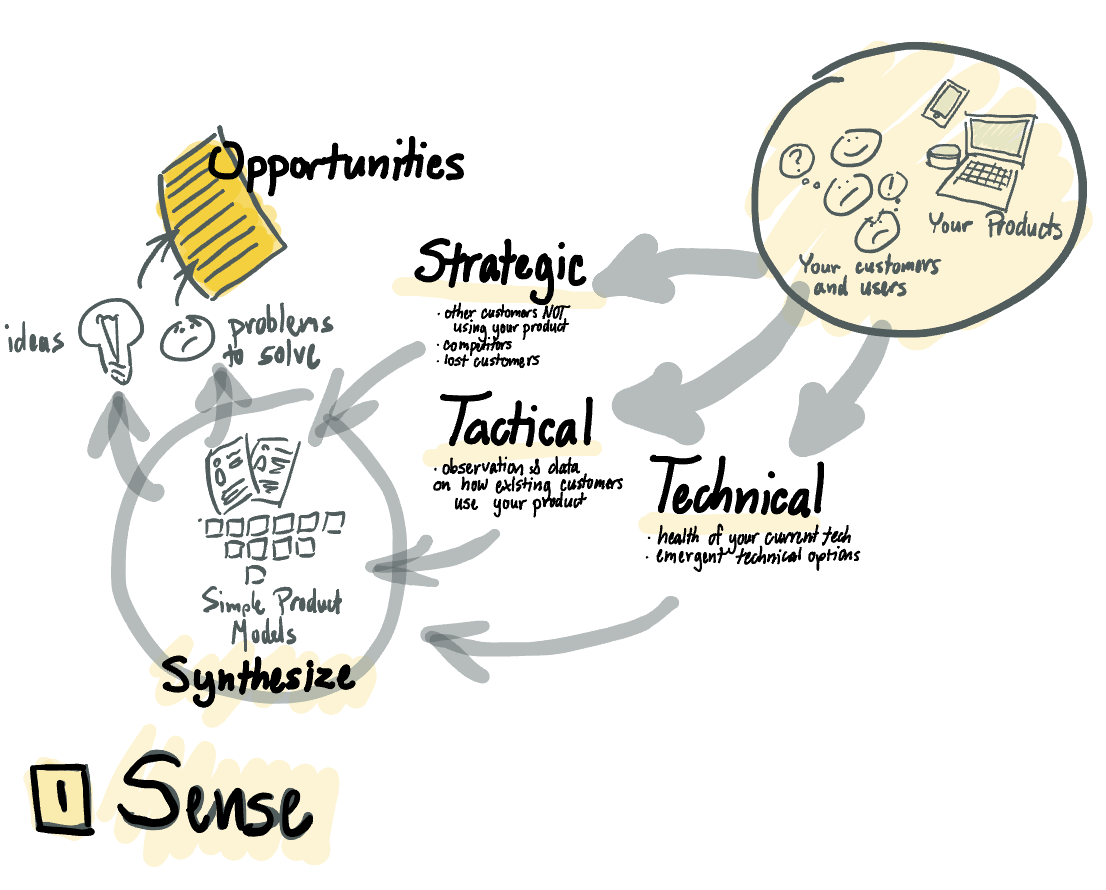 Opportunities
ideas
problems
to solve
Your Products
Your customers
and users
?
!
Strategic
· other customers NOT
using your product
· competitors
· lost customers
Tactical
· observation & data
on how existing customers
use your product
Technical
· health of your current tech
· emergent technical options
Simple Product
Models
Synthesize
1 Sense